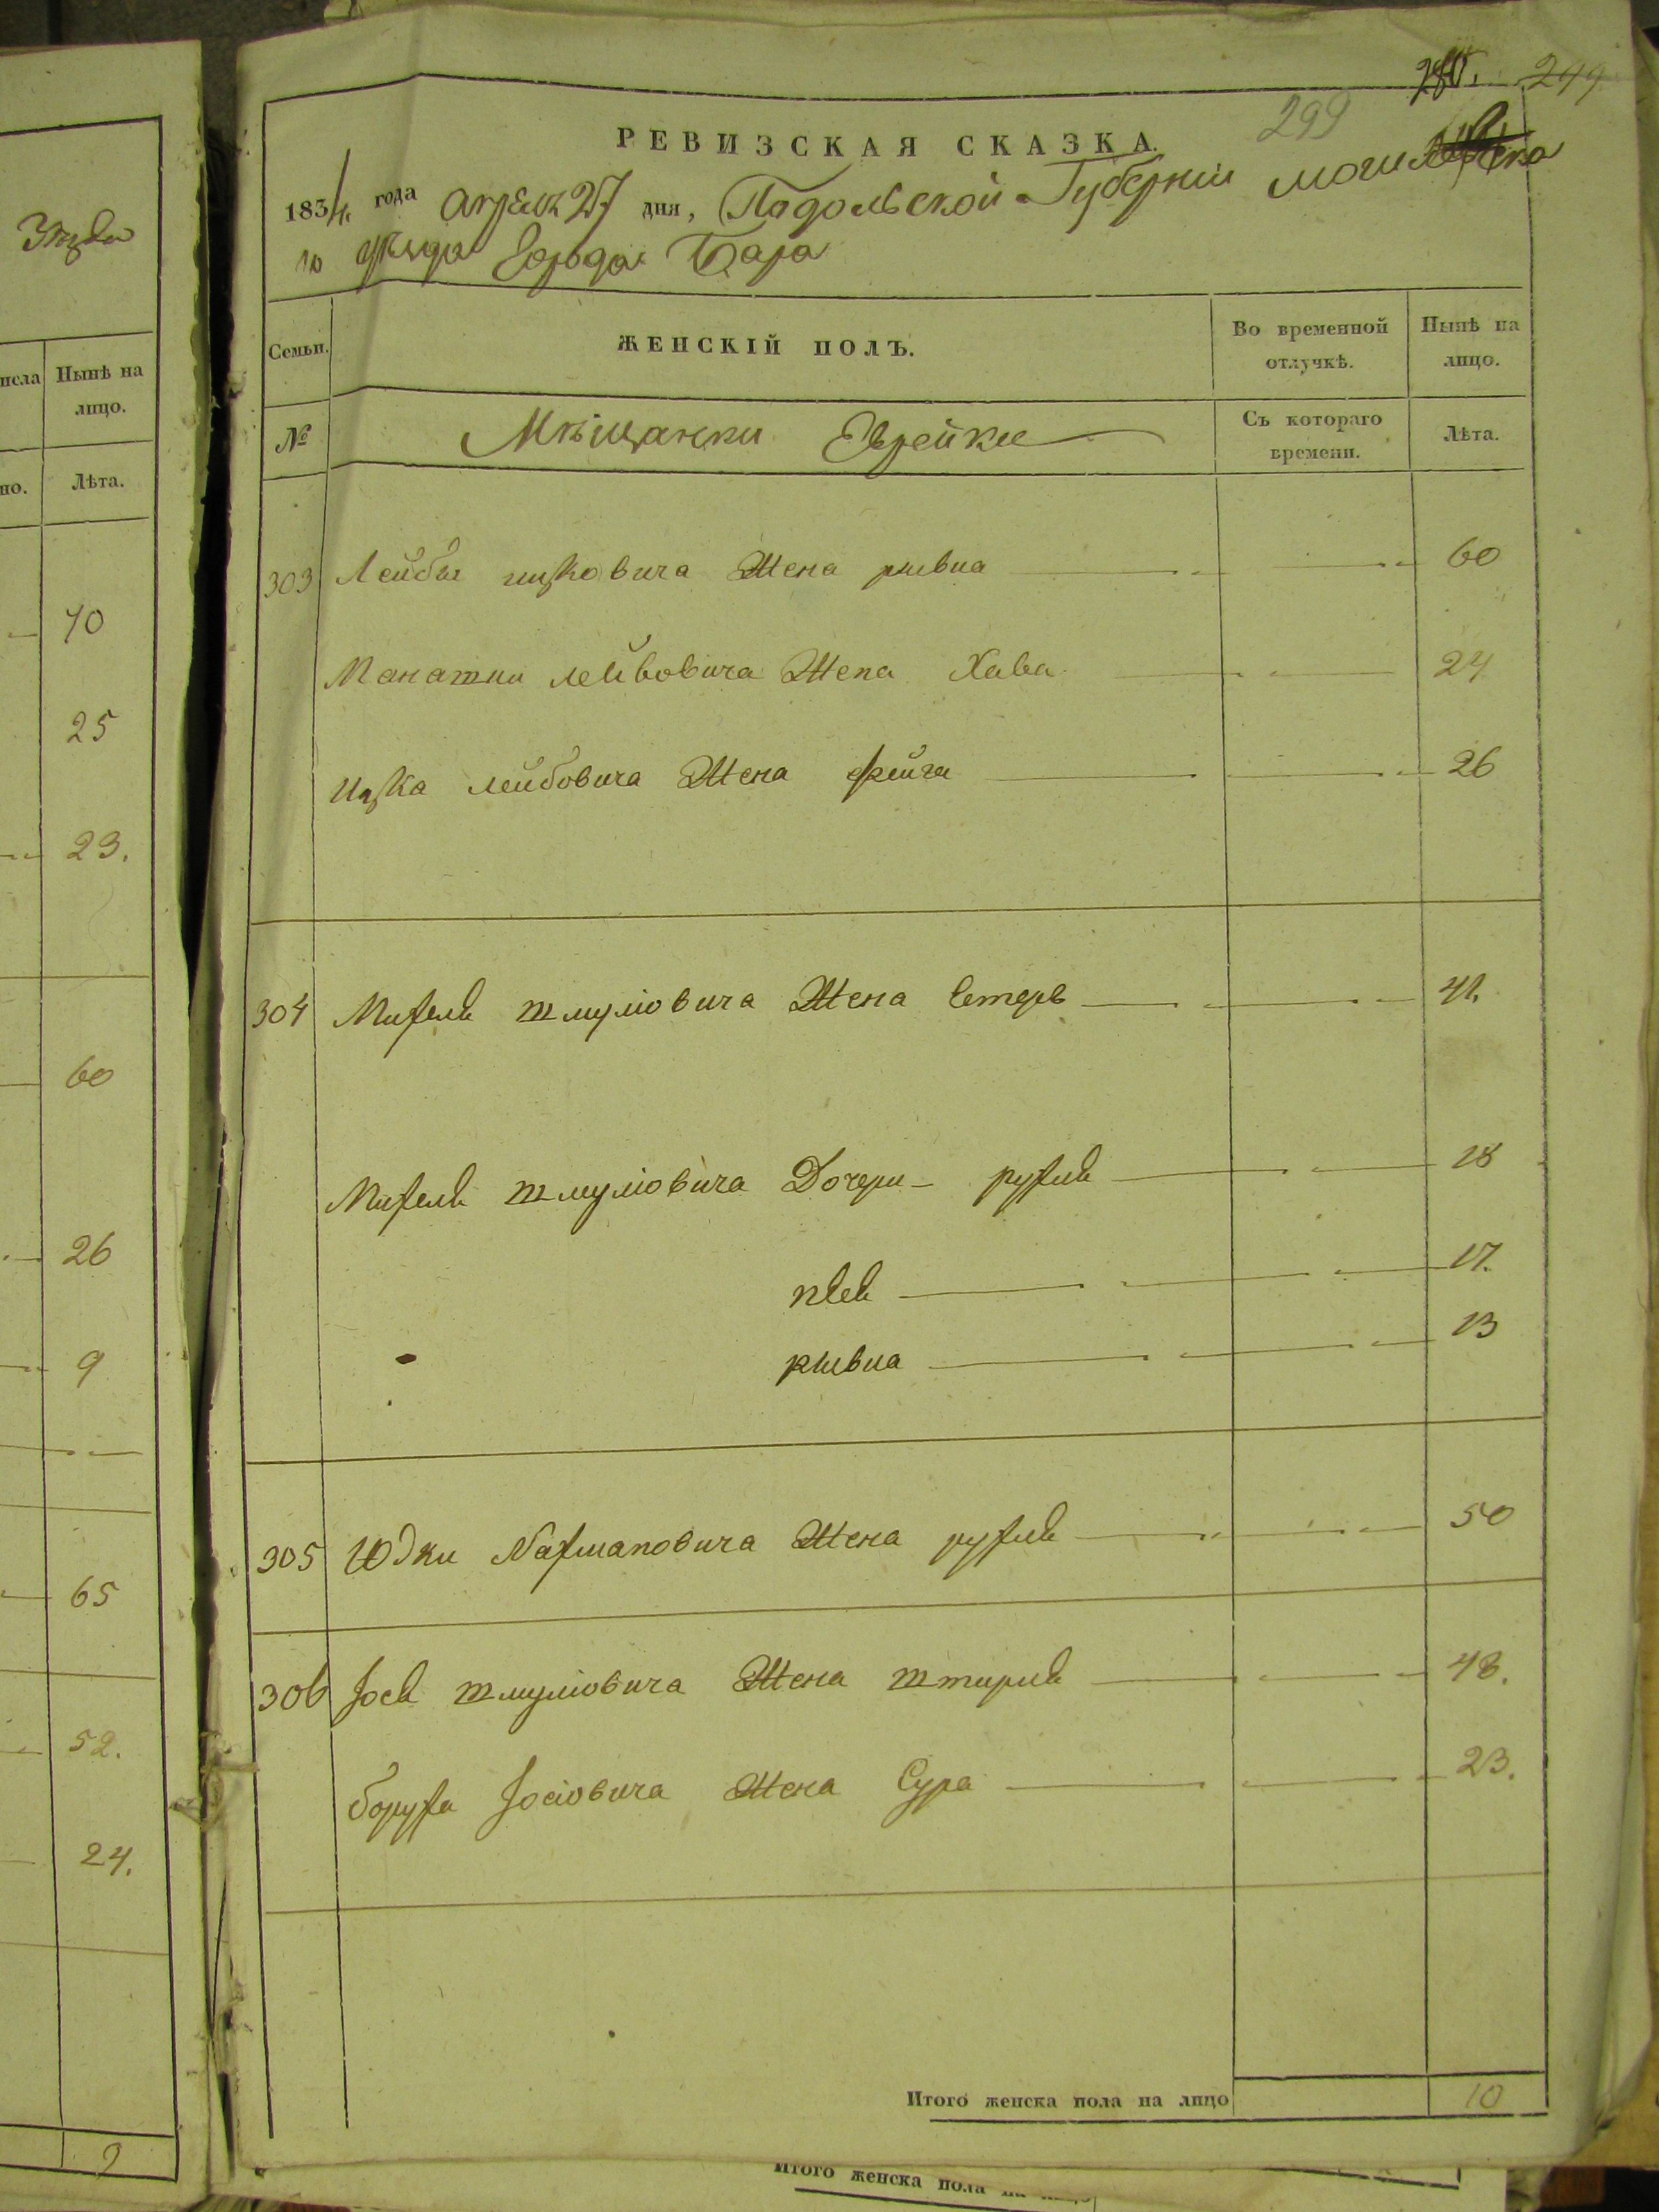 Уезда
Нынѣ на
лицо.
Лѣта.
70
25
23.
60
26
9
65
52.
24.
9
299
299
РЕВИЗСКАЯ СКАЗКА.
1834 года апреля 27 дня, Падольской Губернии
го уезда Города Бара
Семьи.
ЖЕНСКІЙ ПОЛЪ.
Во временной
отлучкѣ.
Нынѣ на
лицо.
№
Мѣщанки Еврейки
Съ котораго
времени.
Лѣта.
303 Лейбы ицковича Жена ривка 60
Манашки лейбовича Жена Хава 24
ицка лейбовича Жена фейга 26
304 Михеля шмулiовича Жена Естеръ 41.
Михеля шмулiовича Дочери рухля 18
17.
ривка 13
305 Юдки Нахмановича Жена рухля 50
306 Iося шмулiовича Жена 48.
боруха Iосiовича Жена Сура 23.
Итого женска пола на лицо 10
Итого женска пола на